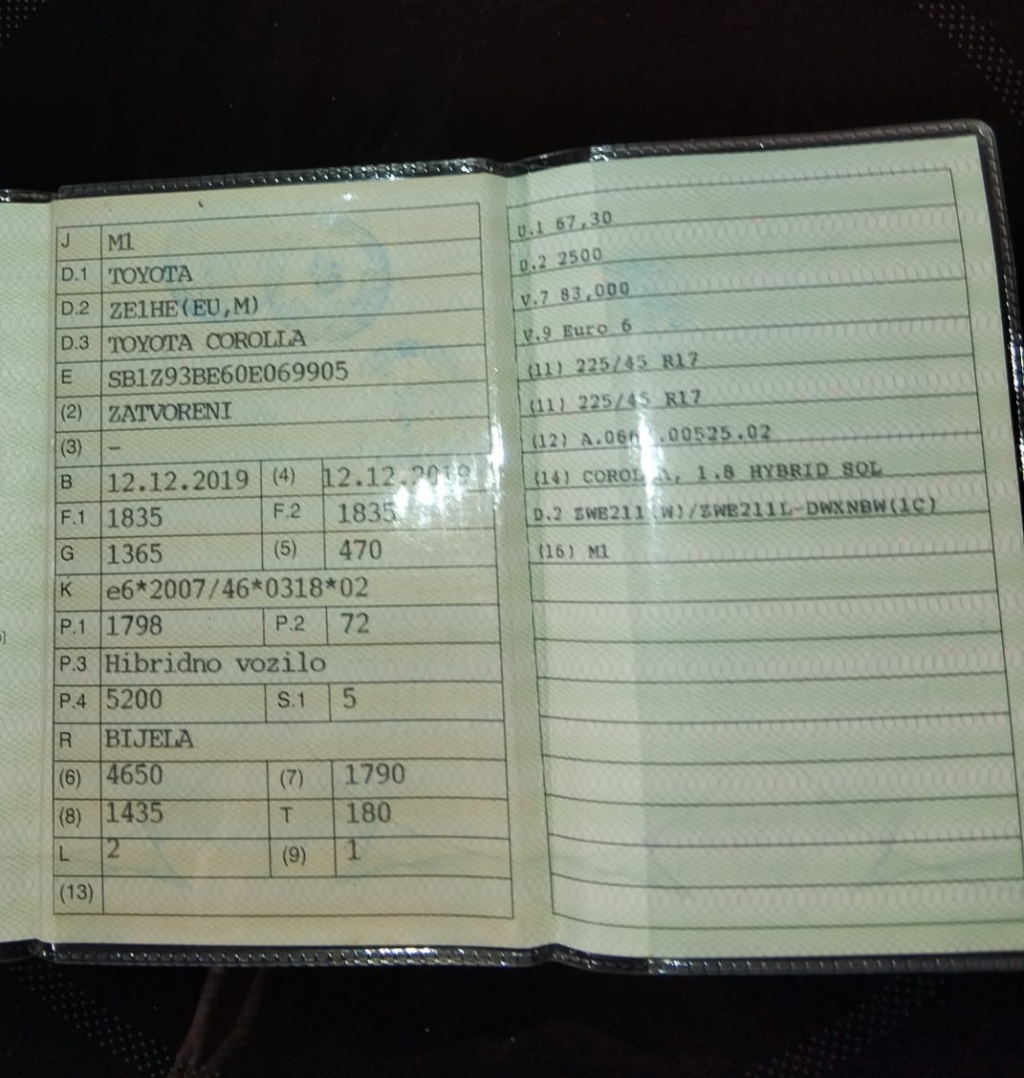 J M1
D.1 TOYOTA
D.2 ZE1HE(EU,M)
D.3 TOYOTA COROLLA
E SB1Z93BE60E069905
(2) ZATVORENI
(3) –
B 12.12.2019 (4) 12.12.2019
F.1 1835 F.2 1835
G 1365 (5) 470
K e6*2007/46*0318*02
P.1 1798 P.2 72
P.3 Hibridno vozilo
P.4 5200 S.1 5
R BIJELA
(6) 4650 (7) 1790
(8) 1435 T 180
L 2 (9) 1
(13)
U.1 67,30
U.2 2500
V.7 83,000
V.9 Euro 6
(11) 225/45 R17
(11) 225/45 R17
(12) .00525.02
(14) 1.8 HYBRID SOL
D.2 ZWE211(W)/ZWE211L-DWXNBW(1C)
(16) M1